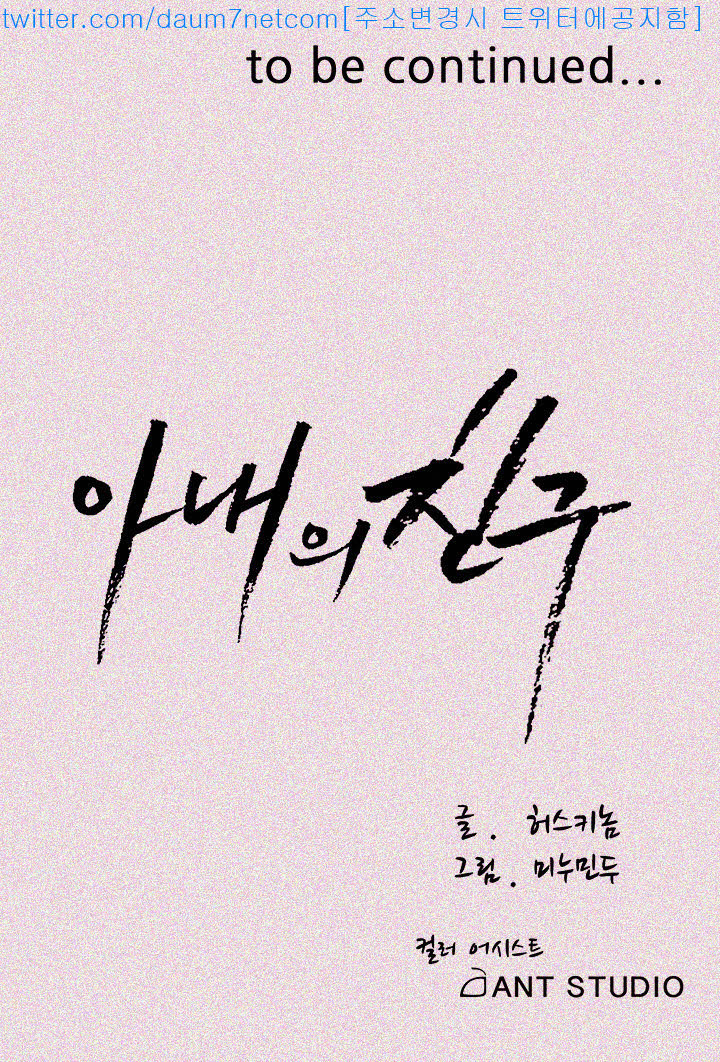 twitter.com/daum7netcom[주소변경시 트위터에공지함]
to be continued...
아내의 친구
글. 허스키놈
그림. 미누민두
컬러 어시스트
ANT STUDIO